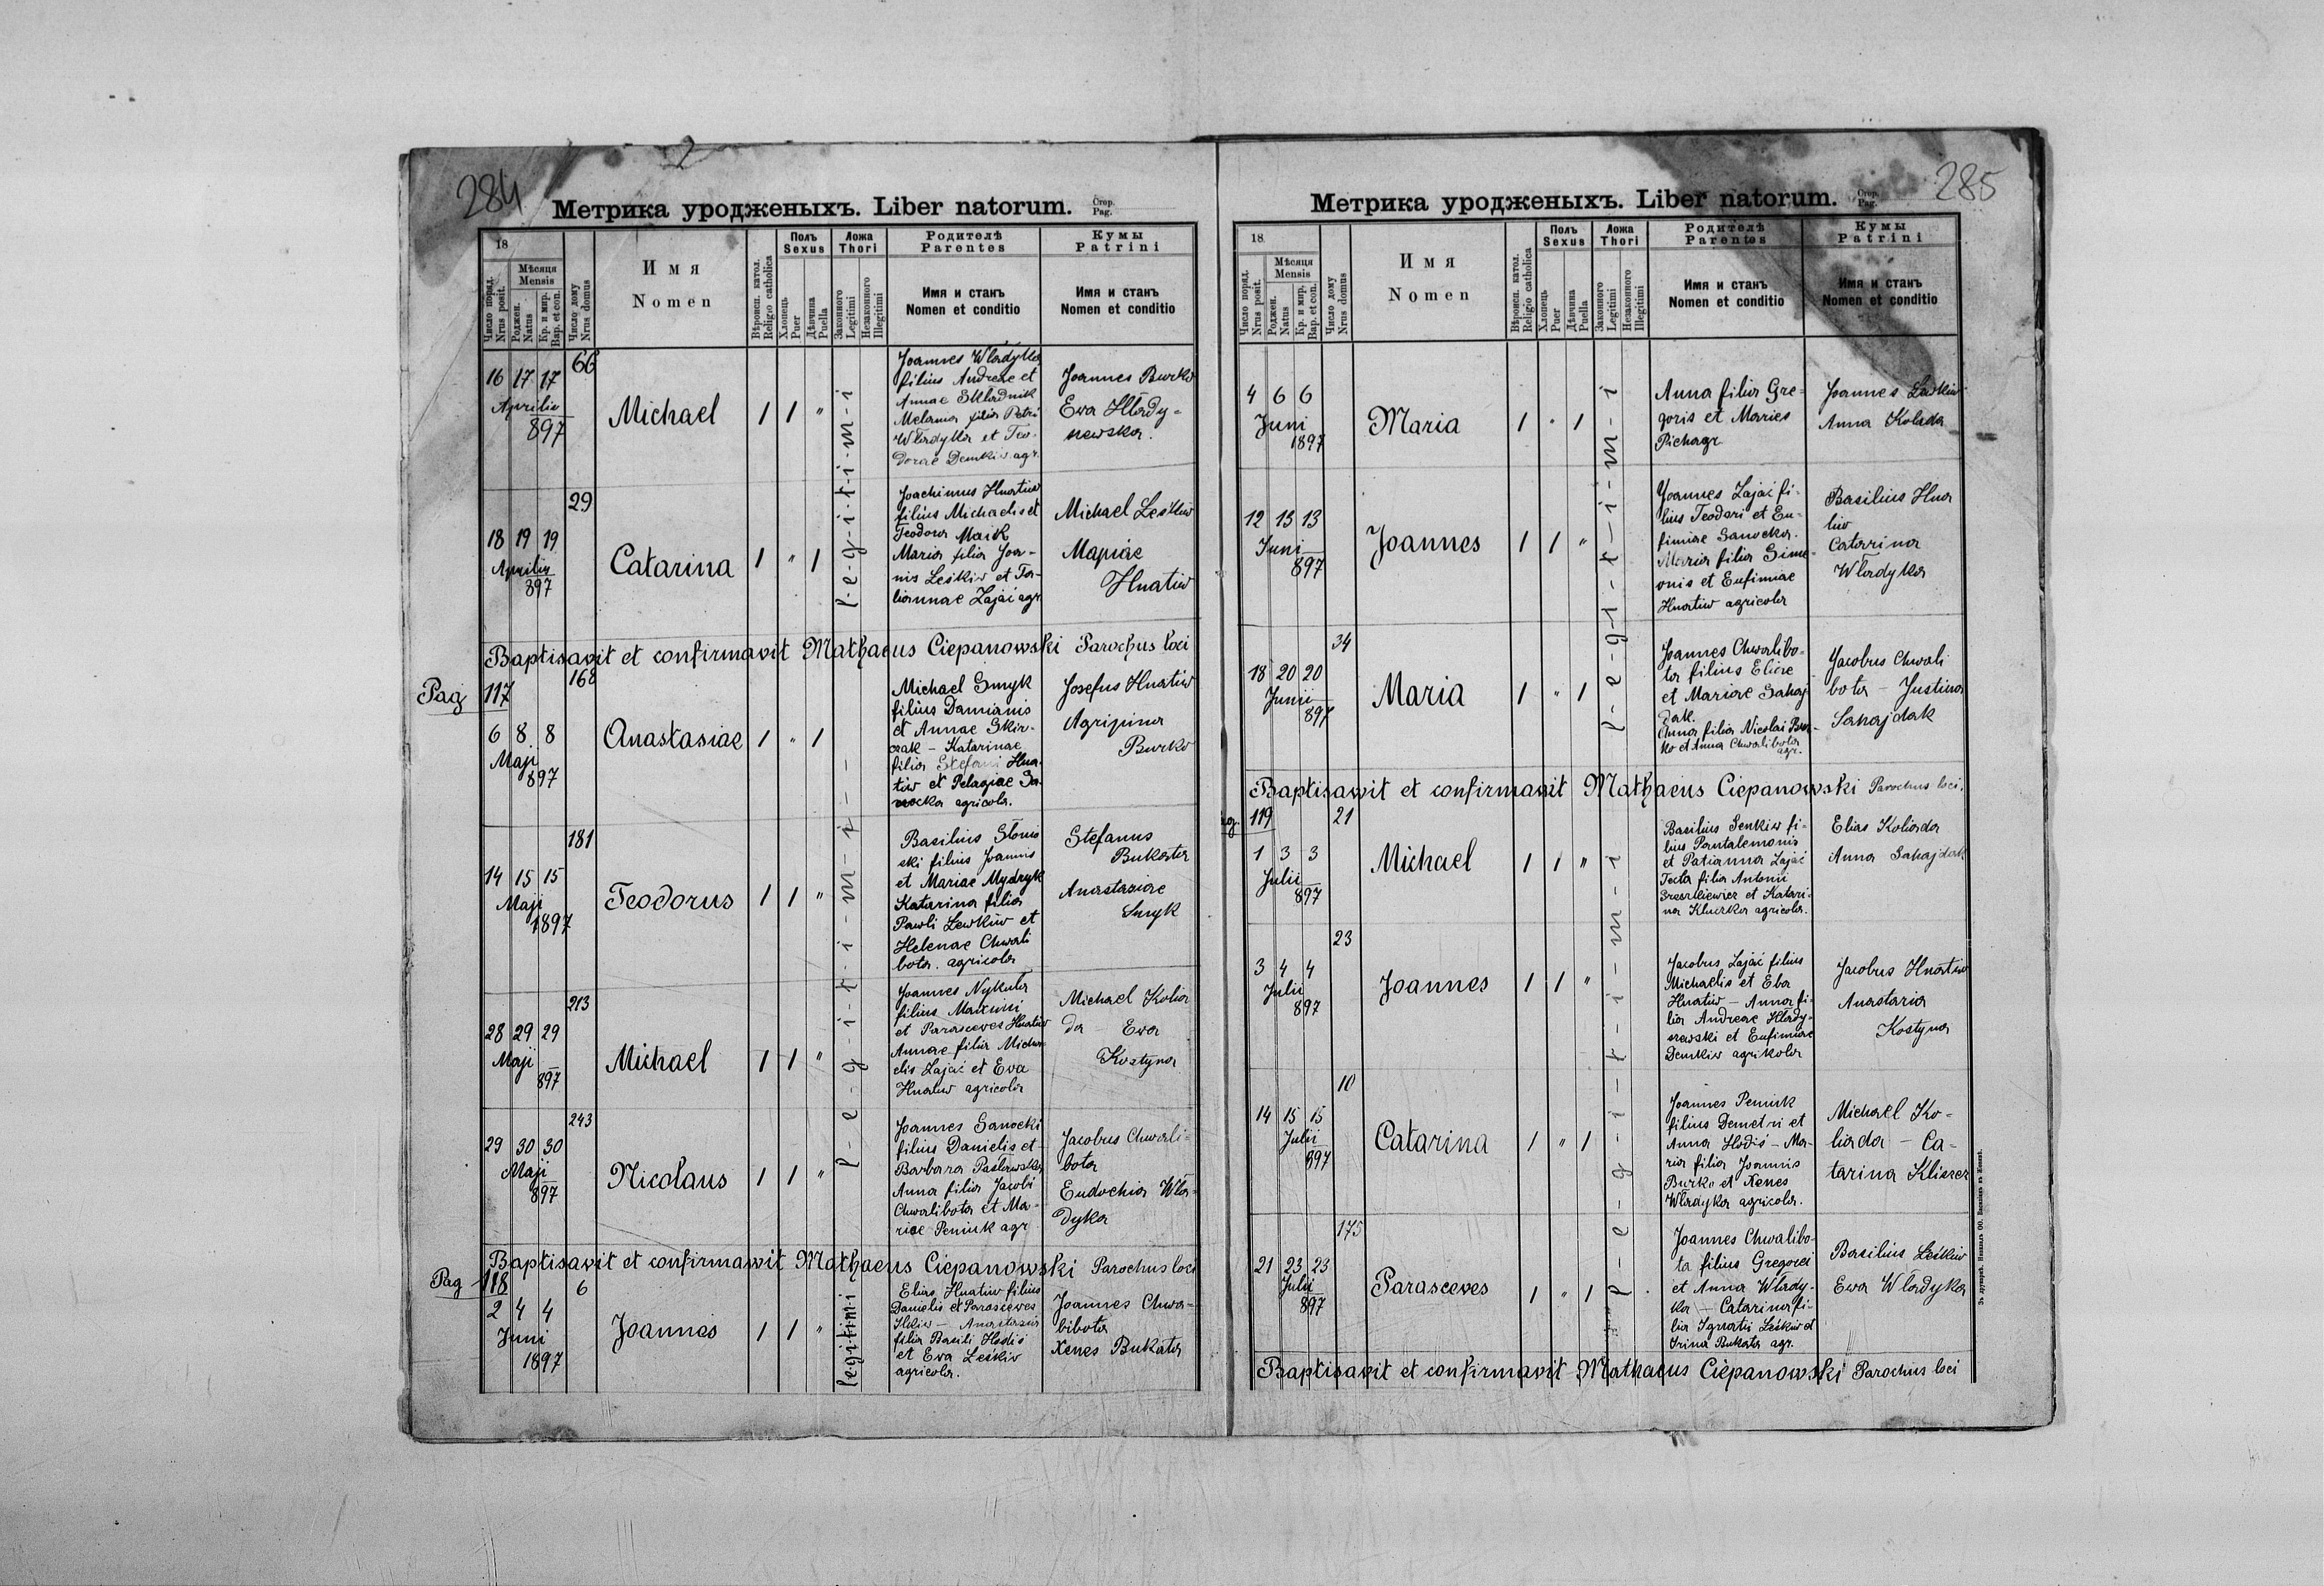 284
2
Метрика уродженыхъ. Liber natorum. Стор. Pag.
18
Число поряд. Nrus posit.
Мѣсяця Mensis
Роджен. Natus
Кр. и мир. Bap. et con.
Число дому Nrus domus
Имя
Nomen
Вѣроисп. катол. Religio catholica
Полъ Sexus
Хлопець Puer
Дѣвчина Puella
Ложа Thori
Законного Legitimi
Незаконного Illegitimi
Родителѣ
Parentes
Имя и станъ
Nomen et conditio
Кумы
Patrini
Имя и станъ
Nomen et conditio
66
16 17 17
Aprilis
897
Michael
1 1 "
l-e-g-i-t-i-m-i
Joannes Wladyka
filius Andreae et
Annae Skladnik
Melania filia Petri
Wladyka et Teo-
dorae Demkiw agr.
Joannes Burko
Ewa Hlady-
szewska.
29
18 19 19
Aprilis
897
Catarina
1 " 1
Joachimus Hnatiw
filius Michaelis et
Teodora Maik
Maria filia Joa-
nis Leśkiw et Ta-
tiannae Zajać agr.
Michael Leśkiw
Mapiae
Hnatiw
Baptisavit et confirmavit Mathaeus Ciepanowski Parochus loci
Pag 117
168
6 8 8
Maji
897
Anastasiae
1 " 1
Michael Smyk
filius Damianis
et Annae Skir-
czak - Katarinae
filia Stefani Hna-
tiw et Pelagiae Sa-
nocka agricola.
Josefus Hnatiw
Agripina
Burko
181
14 15 15
Maji
1897
Teodorus
1 1 "
l-e-g-i-t-i-m-i
Basilius Słonio
ski filius Joannis
et Mariae Mydryk
Katarina filia
Pawli Lewkiw et
Helenae Chwali
bota. agricola
Stefanus
Bukata
Anastasiae
Smyk
213
28 29 29
Maji
897
Michael
1 1 "
Joannes Nykula
filius Maximi
et Parasceves Hnatiw
Annae filia Micha-
elis Zajać et Eva
Hnatiw agricola
Michael Kolia
da Ewa
Kostyna
243
29 30 30
Maji
897
Nicolaus
1 1 "
Joannes Sanocki
filius Danielis et
Barbara Pasławska
Anna filia Jacobi
Chwalibota et Ma-
riae Peniuk agr
Jacobus Chwali-
bota
Eudochia Wla-
dyka
Baptisavit et confirmawit Mathaeus Ciepanowski Parochus loci
Pag 118
6
2 4 4
Juni
1897
Joannes
1 1 "
legitimi
Elias Hnatiw filius
Danielis et Parasceves
Ilkiw - Anastasia
filia Basili Hodiś
et Eva Leśkiw
agricola.
Joannes Chwa-
libota
Xenes Bukata
285
Метрика уродженыхъ. Liber natorum. Стор. Pag.
18
Число поряд. Nrus posit.
Мѣсяця Mensis
Роджен. Natus
Кр. и мир. Bap. et con.
Число дому Nrus domus
Имя
Nomen
Вѣроисп. катол. Religio catholica
Полъ Sexus
Хлопець Puer
Дѣвчина Puella
Ложа Thori
Законного Legitimi
Незаконного Illegitimi
Родителѣ
Parentes
Имя и станъ
Nomen et conditio
Кумы
Patrini
Имя и станъ
Nomen et conditio
4 6 6
Juni
1897
Maria
1 " 1
l-e-g-i-t-i-m-i
Anna filia Gre-
goris et Maries
Pichagr
Joannes
Anna Kolada
12 13 13
Juni
897
Joannes
1 1 "
Joannes Zajać fi-
lius Teodori et Eu-
fimiae Sanocka.
Maria filia Sime-
onis et Eufimiae
Hnatiw agricola
Basilius Hna
tiw
Catarina
Wladyka
34
18 20 20
Junii
897
Maria
1 " 1
Joannes Chwalibo-
ta filius Eliae
et Mariae Sahaj
dak.
Anna filia Nicolai Bur-
ko et Anna Chwalibota
agr.
Jacobus Chwali
bota - Justina
Sahajdak
Baptisawit et confirmawit Mathaeus Ciepanowski Parochus loci.
ag. 119
21
1 3 3
Julii
897
Michael
1 1 "
l-e-g-i-t-i-m-i
Basilius Senkiw fi-
lius Pantalemonis
et Tatianna Zajać
Tecla filia Antonii
et Katari-
na Kluczka agricola.
Elias Koliada
Anna Sahajdak
23
3 4 4
Julii
897
Joannes
1 1 "
Jacobus Zajać filius
Michaelis et Eva
Hnatiw - Anna fi-
lia Andreae Hlady-
szewski et Eufimiae
Demkiw agrikola
Jacobus Hnatiw
Anastazia
Kostyna
10
14 15 15
Julii
897
Catarina
1 " 1
Joannes Peniuk
filius Demetri et
Anna Hodiś - Ma-
ria filia Joannis
Burko et Xenes
Wladyka agricola.
Michael Ko-
liada - Ca-
tarina Kliszcz
175
21 23 23
Julii
897
Parasceves
1 " 1
Joannes Chwalibo-
ta filius Gregorei
et Anna Wlady-
ka - Catarina fi-
lia Ignatii Leśkiw et
Irina Bukata agr.
Basilius Leśkiw
Ewa Wladyka
Baptisavit et confirmavit Mathaeus Ciepanowski Parochus loci